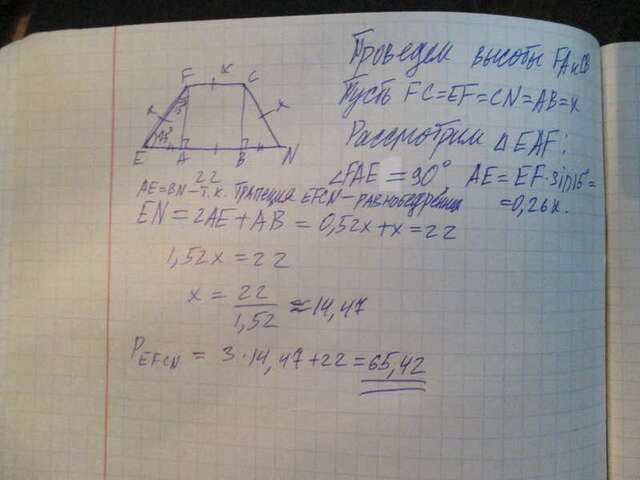 Проведем высоты FA и CB
Пусть FC=EF=CN=AB=x
Рассмотрим △EAF:
∠FAE = 90° AE = EF·sin15°=
=0,26x.
F x C
x 15 x
75°
E A B N
22
AE=BN-т.к. трапеция EFCN-равнобедренная
EN = 2AE + AB = 0,52x+x = 22
1,52x = 22
x = 22/1,52 ≈ 14,47
P_EFCN = 3·14,47+22 = 65,42